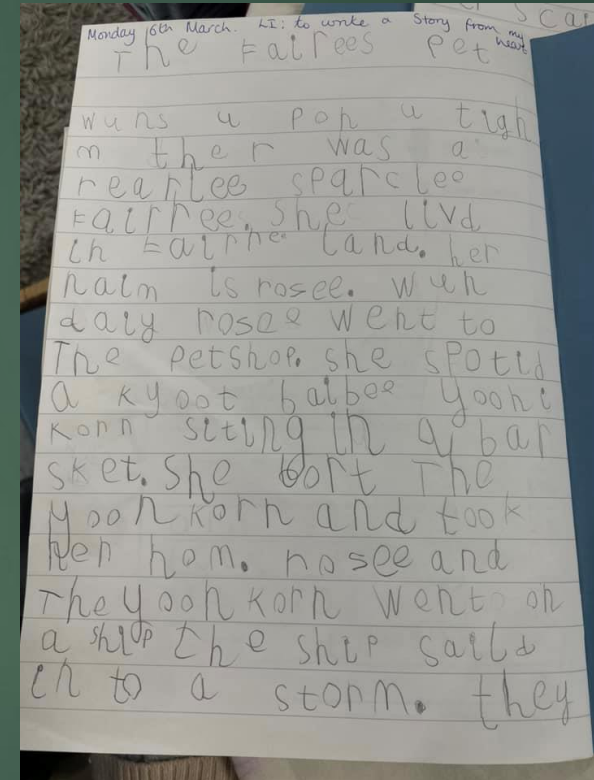 Monday 16th March. LI: to write a Story from my heart
The Fairees Pet
wuns u pon u tigh
m ther was a
rearlee sparclee
Fairree. she livd
in Fairree land. her
naim is rosee. wun
daiy rosee went to
The petshop. she spotid
a kyoot baibee yooni
korn siting in a bar
sket. She bort The
yoonkorn and took
her hom. rosee and
The yoonkorn went on
a ship the ship saild
in to a storm. they